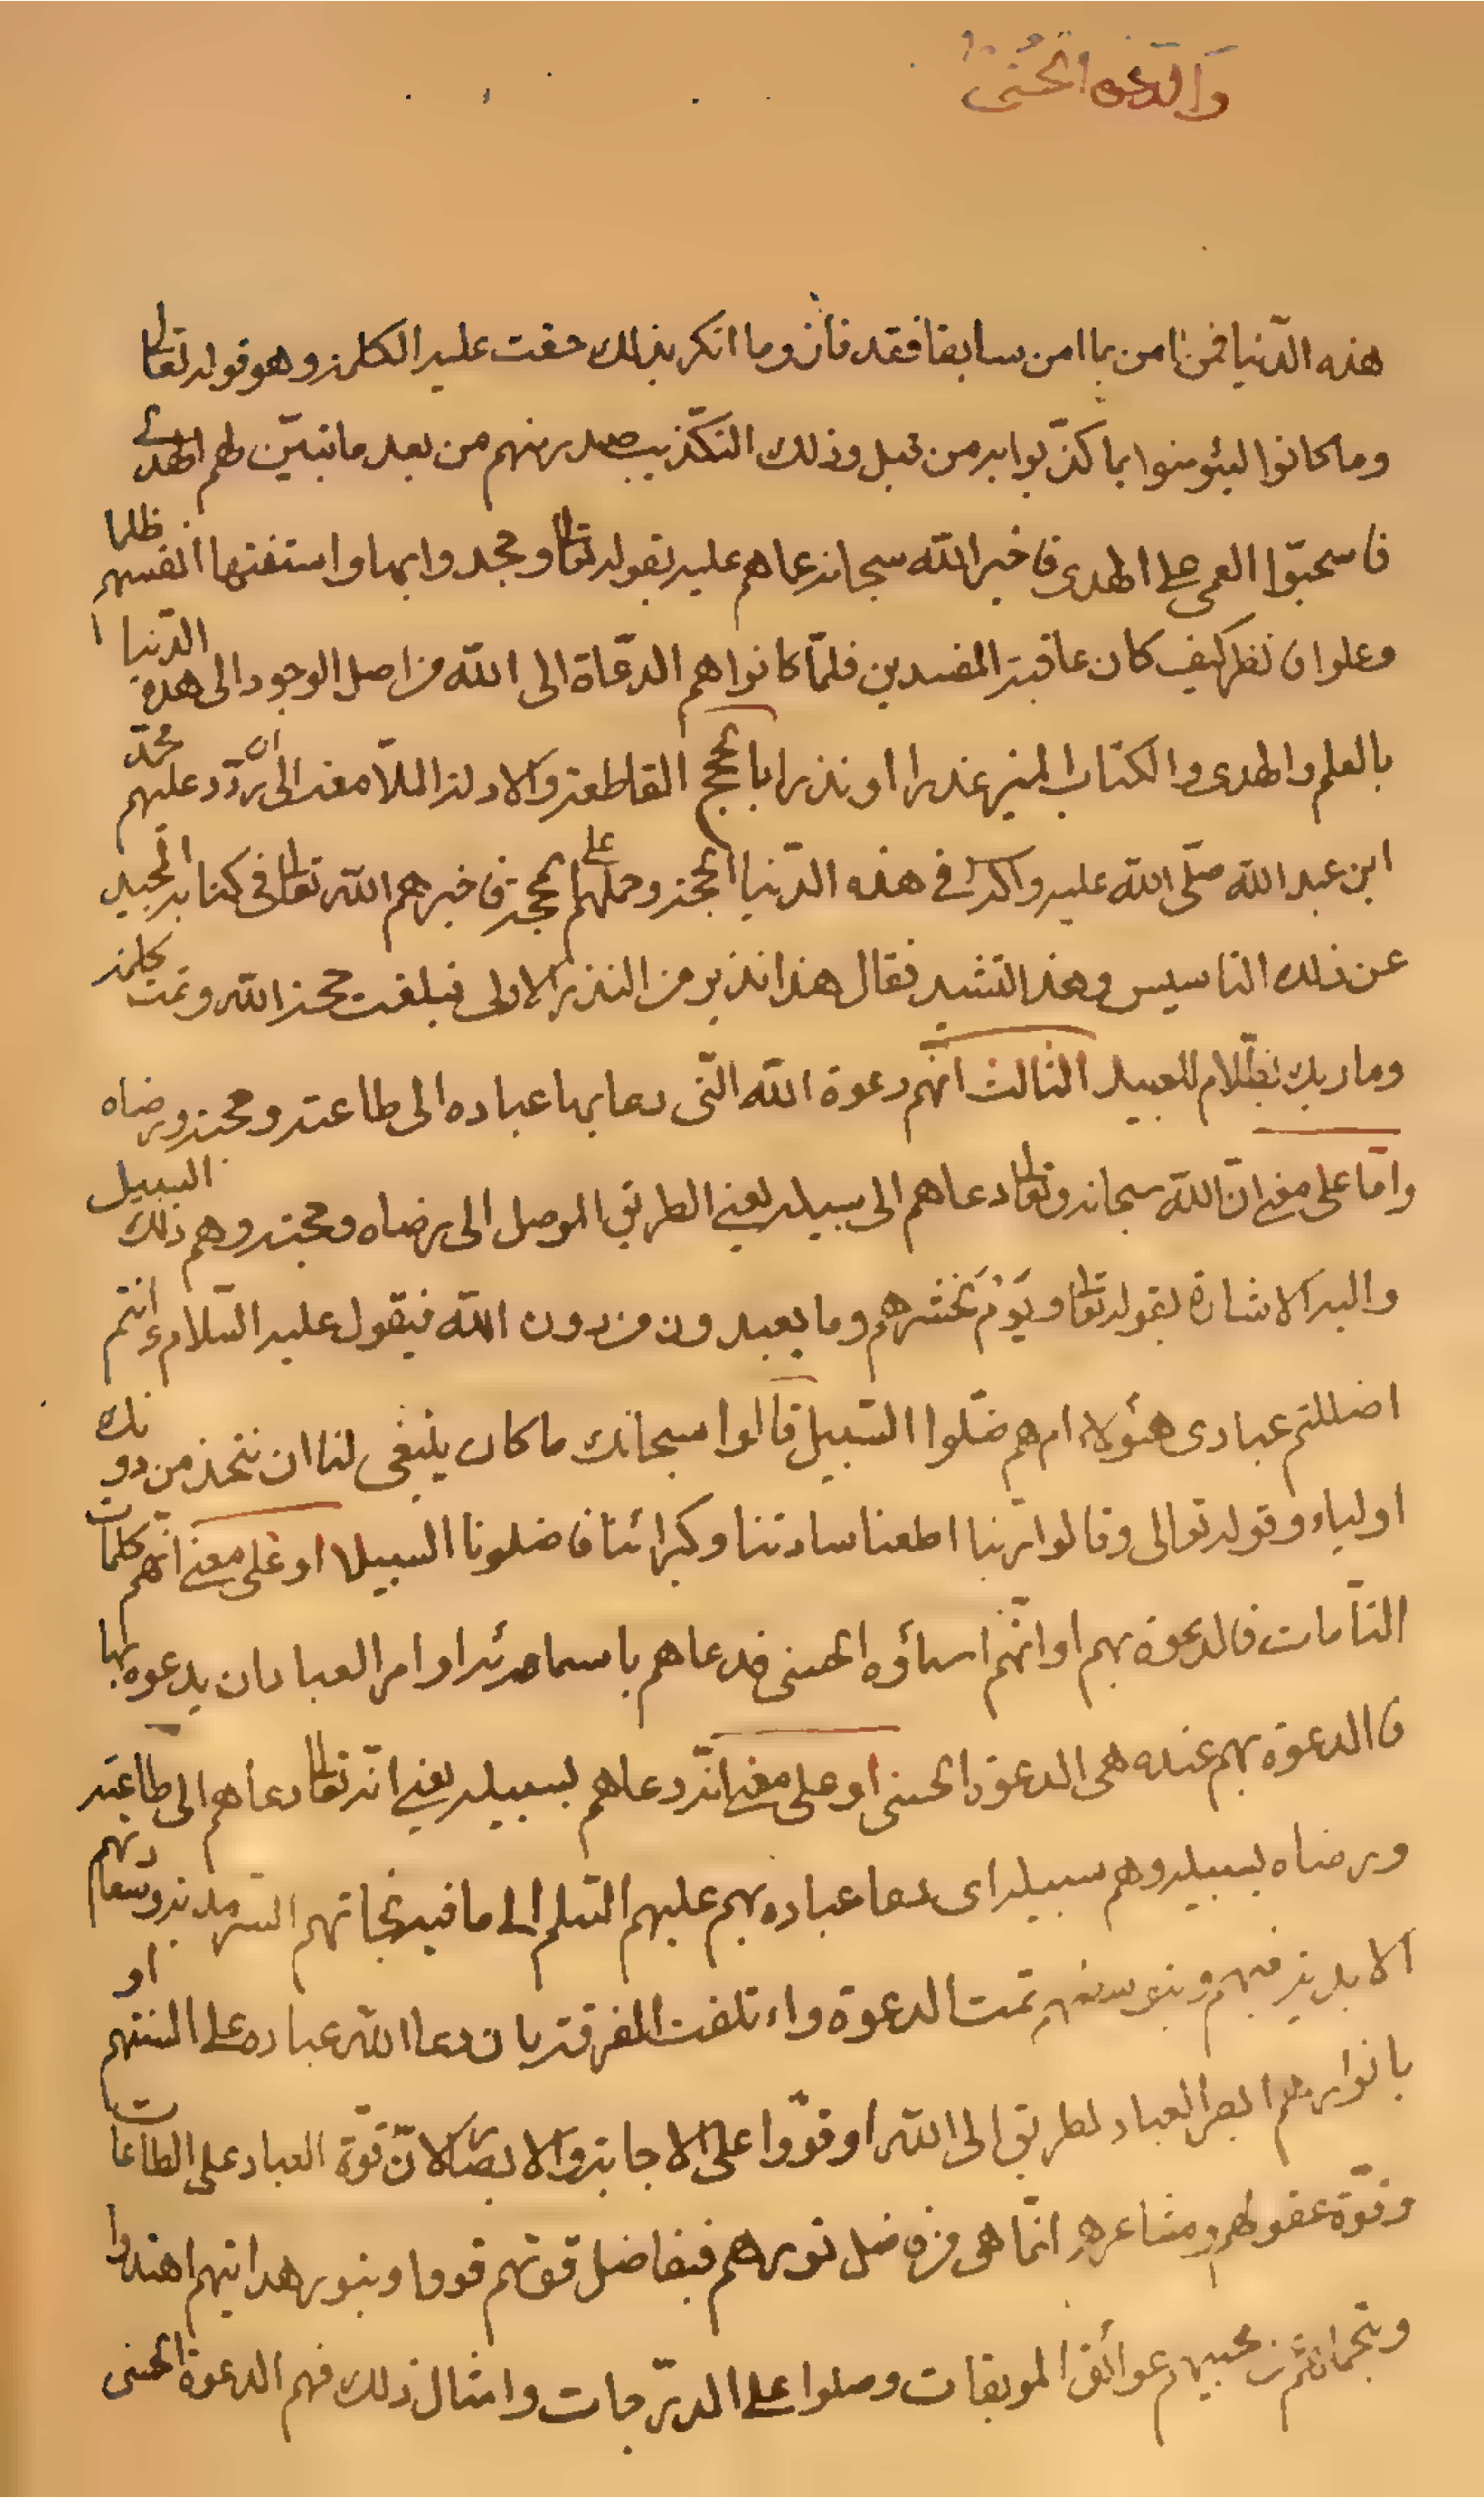 والدعوة الحسنى
هذه الدّنيا فمن امن بما امن سابقا فقد فاز وما انكر بذلك حقت عليه الكلمة وهو قوله تعالى
وما كانوا ليئومنوا بما كذّبوا به من قبل وذلك التكذيب صدر منهم من بعد ما تبيّن لهم الهدى
فاستحبّوا العمى على الهدى فاخبر الله سبحانه عماهم عليه بقوله تعالى وجحدوا بها واستيقنتها انفسهم ظلما
وعلوا فانظر كيف كان عاقبة المفسدين فلمّا كانوا هم الدّعاة الى الله من اصل الوجود الى هذه الدّنيا
بالعلم والهدى والكتاب المنير عذرا او نذرا بالحجج القاطعة والادلة اللّامعة الى ان تردّد عليهم محمّد
ابن عبد الله صلّى الله عليه واله في هذه الدّنيا الحجة وحملهم على المحجة فاخبرهم الله تعالى في كتابه المجيد
عن ذلك التاسيس وهذا التشيد فقال هذا نذير من النذر الاولى فبلغت حجة الله وتمت كلمته
وما ربك بظلّام للعبيد الثالث انّهم دعوة الله الّتى دعا بها عباده الى طاعته ومحبته ورضاه
وامّا على معنى انّ الله سبحانه وتعالى دعاهم الى سبيله يعنى الطريق الموصل الى رضاه ومحبته وهم ذلك السبيل
واليه الاشارة بقوله تعالى ويوم نحشرهم وما يعبدون من دون الله فيقول عليه السّلام ءانتم
اضللتم عبادى هئولاء ام هم ضلّوا السّبيل قالوا سبحانك ما كان ينبغى لنا ان نتخذ من دونك
اولياء وقوله تعالى وقالوا ربنا اطعنا سادتنا وكبرائنا فاضلونا السبيلا او على معنى انّهم كلمات
التّامات فالدعوة بهم او انّهم اسمأؤه الحسنى فدعاهم باسمائه او امر العباد ان يدعوه بها
فالدعوة بهم عنده هى الدعوة الحسنى او على معنى انّه دعاهم لسبيله يعنى انّه تعالى دعاهم الى طاعته
ورضاه بسبيله وهم سبيله اى دعا عباده بهم عليهم السّلم الى ما فيه نجاتهم السّرمدية وسعادتهم
الابدية فبهم وبنورهم تمت الدعوة واءتلفت الفرقة بان دعا الله عباده على السنتهم او
بانوارهم ابصر العباد لطريق الى الله او قوّوا على الاجابة والابصار لانّ قوّة العباد على الطاعات
وقوّة عقولهم ومشاعرهم انّما هى من فاضل نورهم فبفاضل قوّتهم قووا وبنور هدايتهم اهتدوا
محبيهم عوائق الموبقات وصلوا على الدّرجات وامثال ذلك فهم الدعوة الحسنى